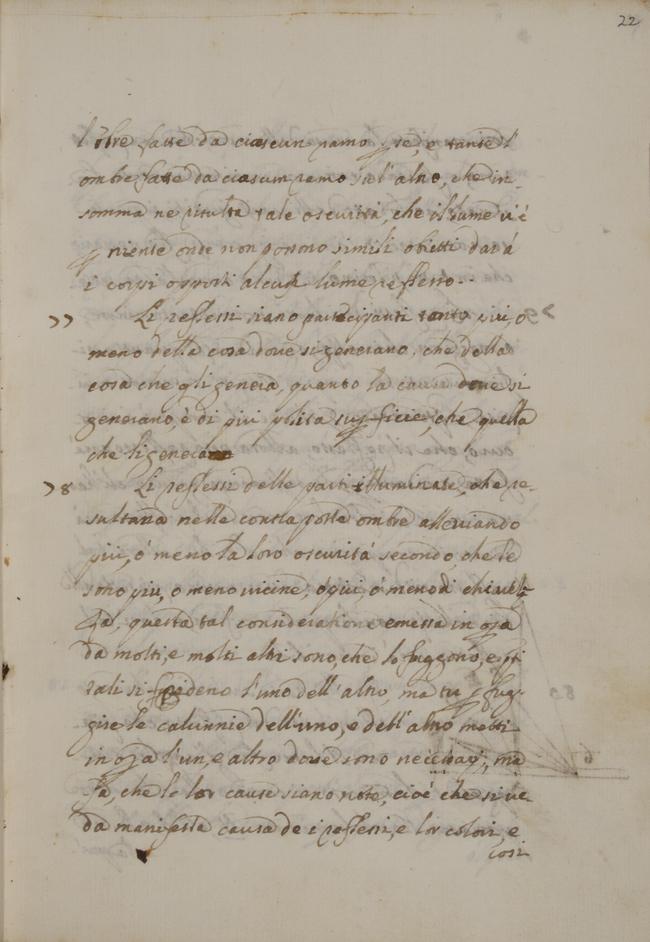 22
l'õbre fatte da ciascun ramo ꝑ se, e tante l'
ombre fatte da ciascun remo sul' altro, che in-
somma ne risulta tale oscurità, che il lume u'é
ꝑ niente onde non possono simili obietti dar á
i corpi opposti alcuñ lume reflesso.
77 Li reflessi siano partecipanti tanto piú, o
meno della cosa dove si generano, che della
cosa che gli genera, quanto la causa doue si
generano, è di piú pulita supficie, che quella
che li genera
78 Li reflessi delle parti illuminate, che re-
sultano nelle contra poste ombre alleuiando
piú, ó meno la loro oscurità secondo, che le
sono piu, o meno vicine, o piú, ó meno di chiarez-
za, questa tal consideratione e messa in oṗa
da molti, e molti altri sono, che lo fuggono, e q̃sti
tali si ridono l'uno dell' altro, ma tu ꝑ fug-
gire le calunnie dell'uno, e dell' altro metti
in oṗa l'un, e altro doue sono neccessarj, ma
fa, che le lor cause siano note, cioé che si ve-
da manifesta causa de i reflessi, e lor colori, e
cosi